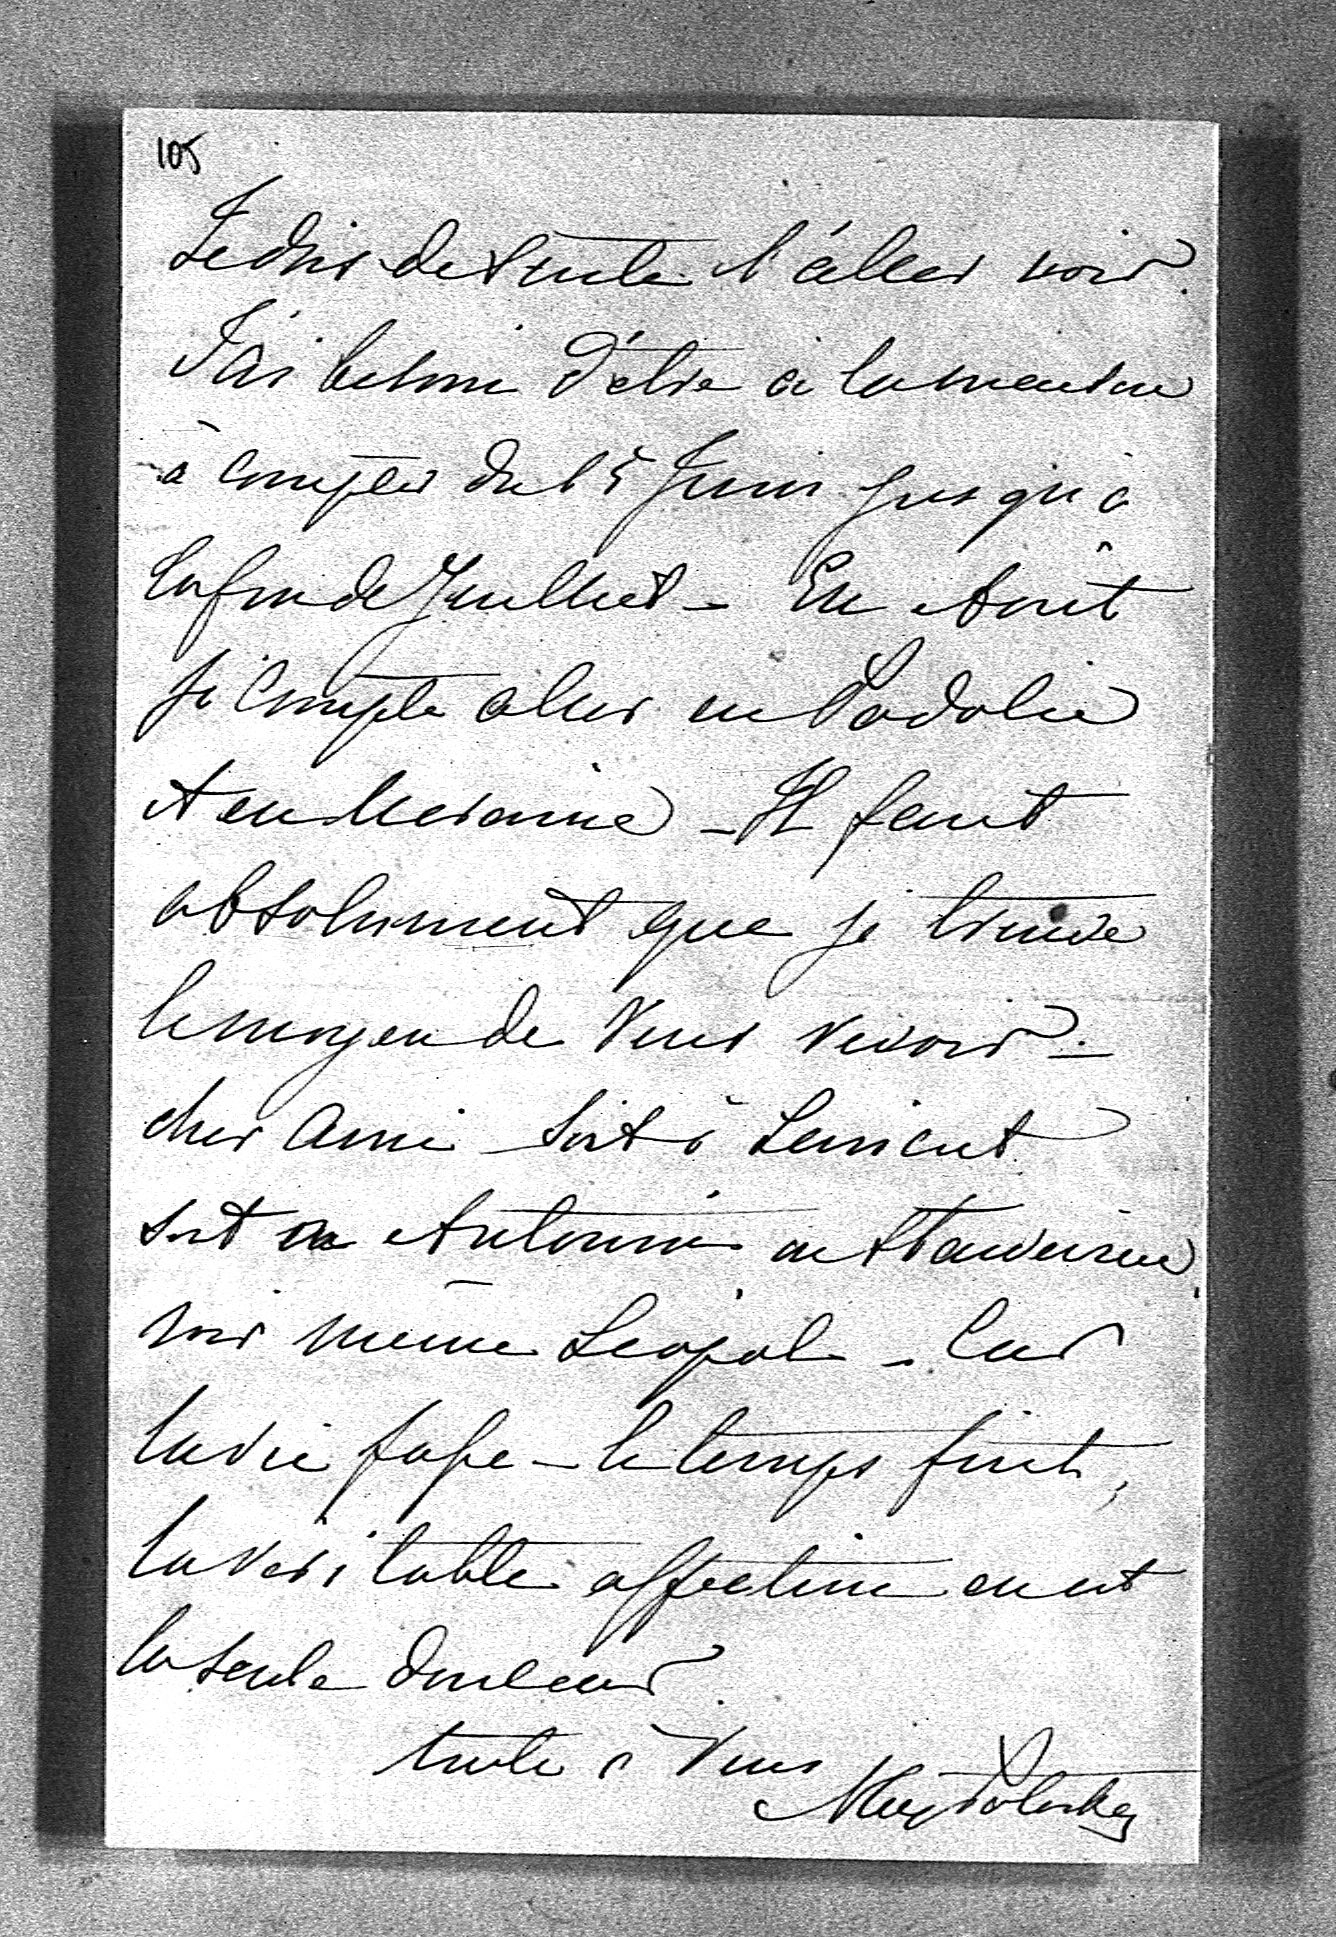 105
Je dois de suite l'aller voir.
J'ai besoin d'être à la maison
à compter du 15 Juin jusqu'à
la fin de Juillet - En Août
je compte aller en Podolie
et en Ucraine - Il faut
absolument que je trouve
le moyen de vous revoir -
cher ami soit à Lancut
soit à Antonin
même Léopol - Car
la vie passe - le temps fuit,
la véritable affection en est
la seule douceur.
toute à vous